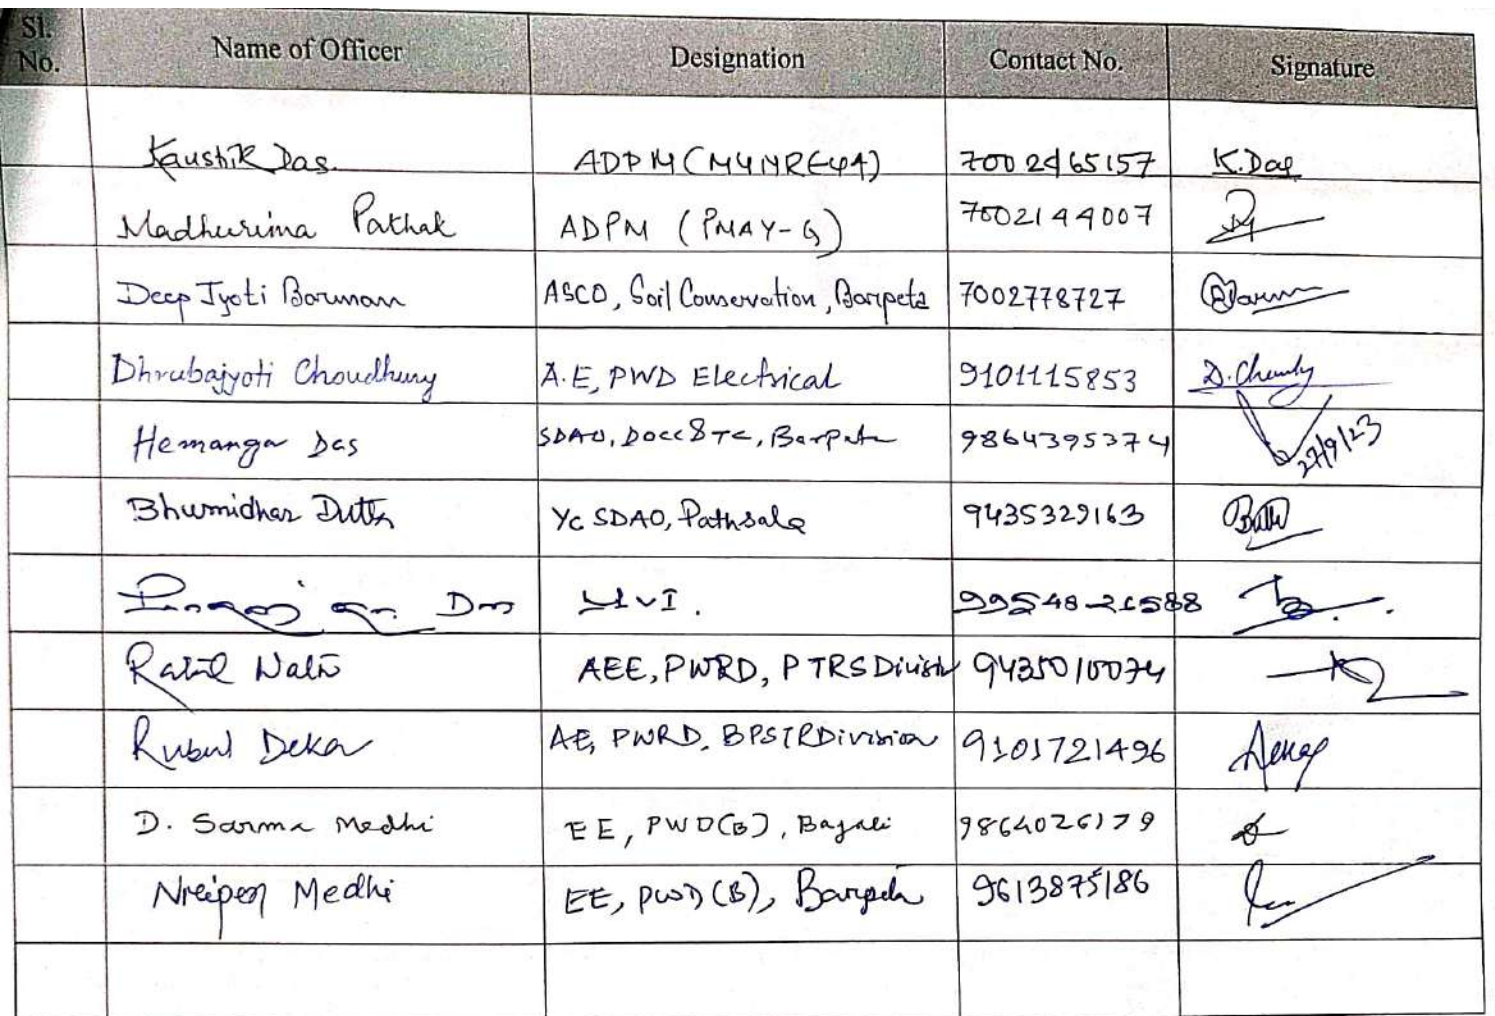 Sl. No. Name of Officer Designation Contact No. Signature
Kaushik Das. ADPM (MGNREGA) 7002465157 K.Das
Madhurima Pathak ADPM (PMAY-G) 7002144007
Deep Jyoti Barman ASCO, Soil Conservation, Barpeta 7002778727
Dhrubajyoti Choudhury A.E, PWD Electrical 9101115853
Hemanga Das SDAO, Barpeta 9864395374 27/9/23
Bhumidhar Dutta SDAO, Pathsala 9435329163
Das
AEE, PWRD, PTRS Division 9435010074
Rubul Deka AE, PWRD, Division 9101721496
D. Sarma Medhi EE, PWD(B), Bajali 9864026179
Nreipen Medhi EE, PWD (B), Barpeta 9613875186